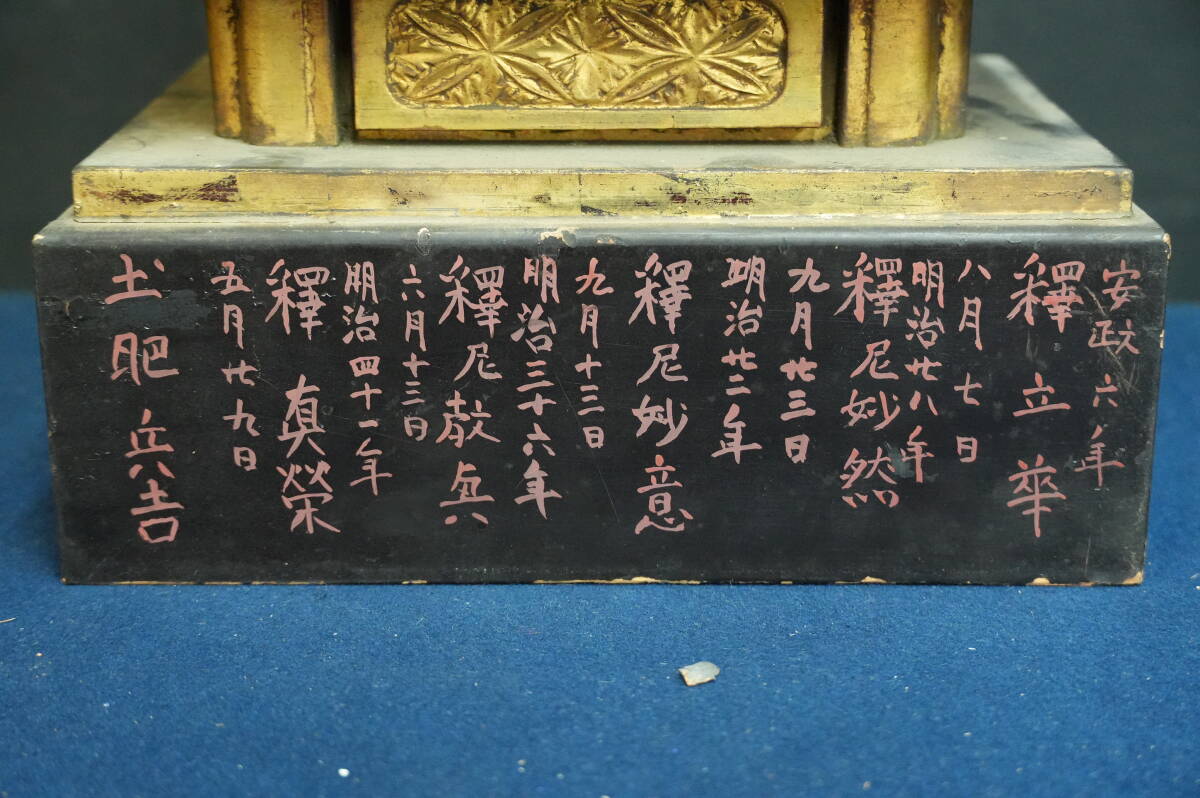 安政六年
釋立華
八月七日
明治廿八年
釋尼妙然
九月廿三日
明治廿二年
釋尼妙意
九月十三日
明治三十六年
釋尼敎眞
六月十三日
明治四十一年
釋眞榮
五月廿九日
土肥兵吉